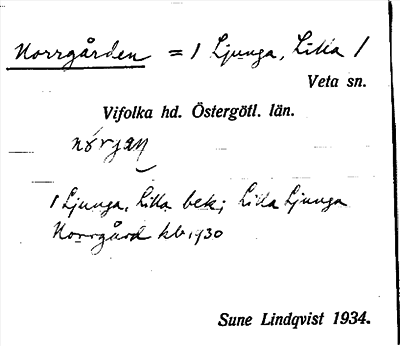 Norrgården = 1 Ljunga, Lilla 1
Veta sn.
Vifolka hd. Östergötl. län.
1 Ljunga, Lilla bek; Lilla Ljunga
Norrgård kb. 1930
Sune Lindqvist 1934.